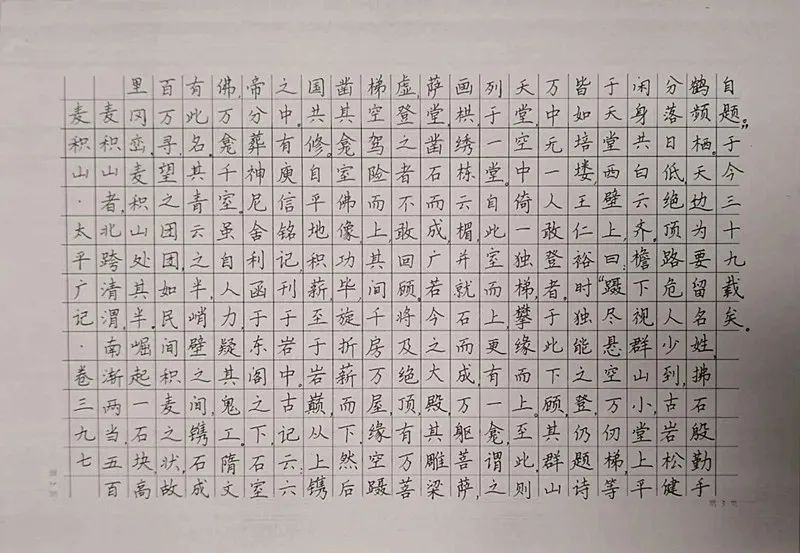 麦积山·太平广记·卷三九七
麦积山者,北跨清渭,南渐两当,五百
里冈峦,麦积山处其半。崛起一石块,高
百万寻,望之团团,如民间积麦之状,故
有此名。其青云之半,峭壁之间,镌石成
佛,万龛千室。虽自人力,疑其鬼工。隋文
帝分葬神尼舍利函于东阁之下,石室
之中。有庾信铭记,刊于岩中。古记云:六
国共修。自平地积薪,至于岩巅,从上镌
凿其龛室佛像。功毕,旋折薪而下,然后
梯空驾险而上。其间千房万屋,缘空蹑
虚,登之者不敢回顾。将及绝顶,有万菩
萨堂,凿石而成,广若今之大殿。其雕梁
画栱,绣栋云楣,并就石而成。万躯菩萨,
列于一堂。自此室而上,更有一龛,谓之
天堂,空中倚一独梯,攀缘而上。至此,则
万中无一人敢登者。于此下顾,其群山
皆如培塿,王仁裕时独能登之,仍题诗
于天堂西壁上,曰:“蹑尽悬空万仞梯,等
闲身共白云齐。檐下视群山小,堂上平
分落日低。绝顶路危人少到,古岩松健
鹤频栖。天边为要留名姓,拂石殷勤手
自题。”于今三十九载矣。
第 3 页